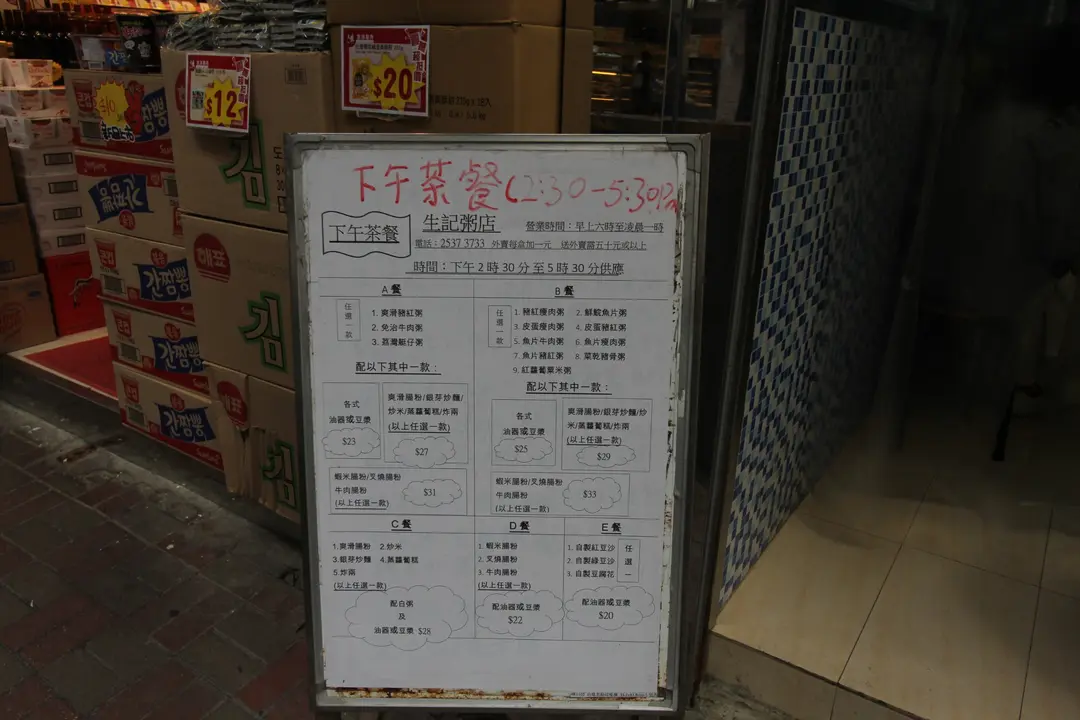 $12
$20
下午茶餐 (2:30-5:30Pm
下午茶餐
生記粥店
營業時間：早上六時至凌晨一時
電話：2537 3733 外賣每盒加一元 送外賣需五十元或以上
時間：下午 2 時 30 分 至 5 時 30 分供應
A 餐
任選一款
1. 爽滑豬紅粥
2. 免治牛肉粥
3. 荔灣艇仔粥
配以下其中一款：
各式
油器或豆漿
$23
爽滑腸粉/銀芽炒麵/
炒米/蒸蘿蔔糕/炸兩
(以上任選一款)
$27
蝦米腸粉/叉燒腸粉
牛肉腸粉
(以上任選一款)
$31
B 餐
任選一款
1. 豬紅瘦肉粥 2. 鮮鯇魚片粥
3. 皮蛋瘦肉粥 4. 皮蛋豬紅粥
5. 魚片牛肉粥 6. 魚片瘦肉粥
7. 魚片豬紅粥 8. 菜乾豬骨粥
9. 紅蘿蔔粟米粥
配以下其中一款：
各式
油器或豆漿
$25
爽滑腸粉/銀芽炒麵/炒
米/蒸蘿蔔糕/炸兩
(以上任選一款)
$29
蝦米腸粉/叉燒腸粉
牛肉腸粉
(以上任選一款)
$33
C 餐
1.爽滑腸粉 2.炒米
3.銀芽炒麵 4.蒸蘿蔔糕
5.炸兩
(以上任選一款)
配白粥
及
油器或豆漿 $28
D 餐
1. 蝦米腸粉
2. 叉燒腸粉
3. 牛肉腸粉
(以上任選一款)
配油器或豆漿
$22
E 餐
1. 自製紅豆沙
2. 自製綠豆沙
3. 自製豆腐花
任選一
配油器或豆漿
$20
해표
김
간짬뽕
간짬뽕
간짬뽕
김